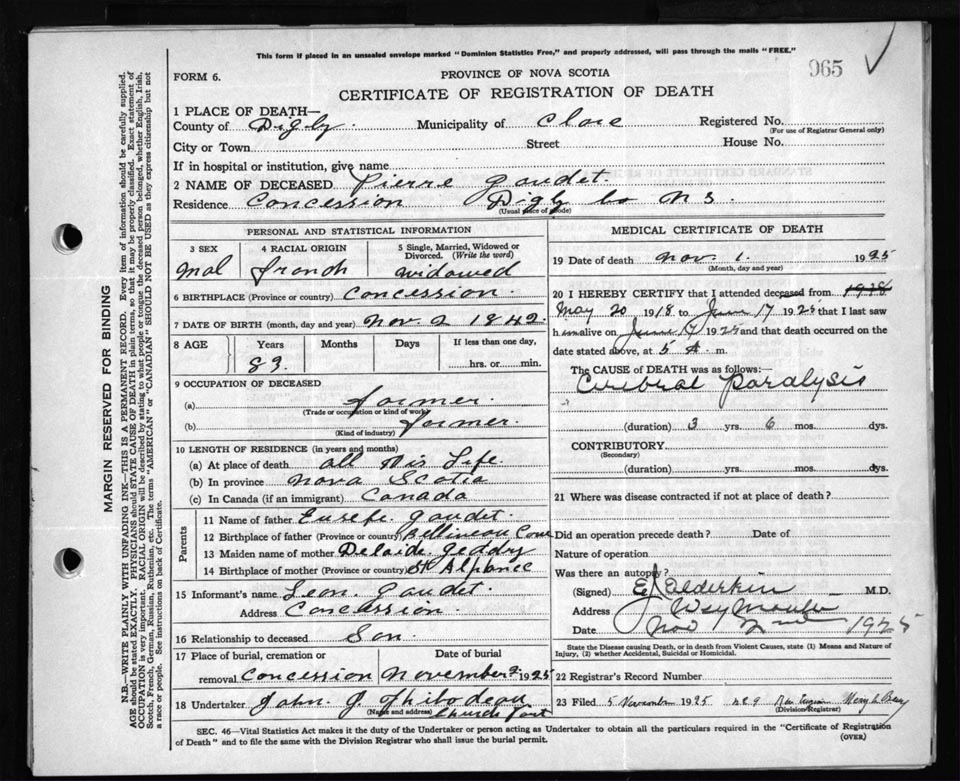 This form if placed in an unsealed envelope marked "Dominion Statistics Free," and properly addressed, will pass through the mails "FREE."
965
FORM 6.
PROVINCE OF NOVA SCOTIA
CERTIFICATE OF REGISTRATION OF DEATH
1 PLACE OF DEATH—
County of Digby Municipality of Clare Registered No.
(For use of Registrar General only)
City or Town Street House No.
If in hospital or institution, give name
2 NAME OF DECEASED Pierre Gaudet.
Residence Concession Digby Co N S.
(Usual place of abode)
PERSONAL AND STATISTICAL INFORMATION
3 SEX 4 RACIAL ORIGIN 5 Single, Married, Widowed or Divorced. (Write the word)
Mal french widowed
6 BIRTHPLACE (Province or country) Concession.
7 DATE OF BIRTH (month, day and year) Nov 2 1842.
8 AGE Years Months Days If less than one day,
83. hrs. or min.
9 OCCUPATION OF DECEASED
(a) farmer.
(Trade or occupation or kind of work)
(b) farmer.
(Kind of industry)
10 LENGTH OF RESIDENCE (in years and months)
(a) At place of death all His Life.
(b) In province Nova Scotia
(c) In Canada (if an immigrant) Canada
Parents
11 Name of father Gaudet.
12 Birthplace of father (Province or country)
13 Maiden name of mother Delaide
14 Birthplace of mother (Province or country) St
15 Informant's name Leon Gaudet.
Address Concession.
16 Relationship to deceased Son.
17 Place of burial, cremation or Date of burial
removal Concession November 2 1925
18 Undertaker John. J. Thibodeau
(Name and address) Church Point
MEDICAL CERTIFICATE OF DEATH
19 Date of death Nov. 1. 1925
(Month, day and year)
20 I HEREBY CERTIFY that I attended deceased from 1918
May 20 1918 to June 17 1925 that I last saw
h im alive on June 17 1925 and that death occurred on
date stated above, at 5 A. m.
The CAUSE of DEATH was as follows:
Cerebral Paralysis
(duration) 3 yrs. 6 mos. dys.
CONTRIBUTORY
(Secondary)
(duration) yrs. mos. dys.
21 Where was disease contracted if not at place of death?
Did an operation precede death? Date of
Nature of operation
Was there an autopsy?
(Signed) Elderkin M.D.
Address Weymouth
Date Nov 2nd 1925
State the Disease causing Death, or in death from Violent Causes, state (1) Means and Nature of Injury, (2) whether Accidental, Suicidal or Homicidal.
22 Registrar's Record Number
23 Filed 5 November 1925
(Division Registrar)
SEC. 46—Vital Statistics Act makes it the duty of the Undertaker or person acting as Undertaker to obtain all the particulars required in the "Certificate of Registration
of Death" and to file the same with the Division Registrar who shall issue the burial permit.
(OVER)
MARGIN RESERVED FOR BINDING
N.B.—WRITE PLAINLY WITH UNFADING INK—THIS IS A PERMANENT RECORD. Every item of information should be carefully supplied.
AGE should be stated EXACTLY. PHYSICIANS should STATE CAUSE OF DEATH in plain terms, so that it may be properly classified. Exact statement of
OCCUPATION is very important. RACIAL ORIGIN will be described by stating to what people or tongue the deceased person belonged, whether English, Irish,
Scotch, French, German, Russian, Ruthenian, etc. The terms "AMERICAN" or "CANADIAN" SHOULD NOT BE USED as they express citizenship but not
a race or people. See instructions on back of Certificate.